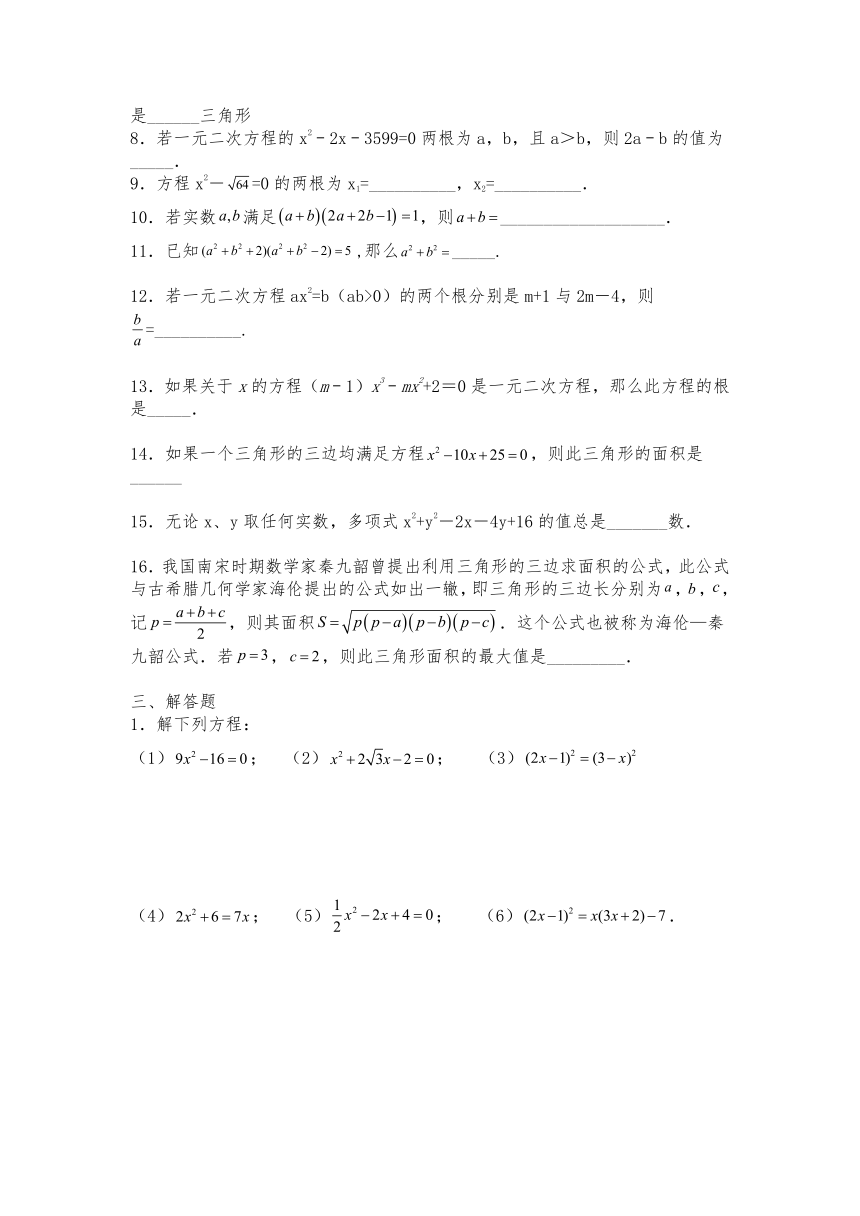 是______三角形
8．若一元二次方程的 x²﹣2x﹣3599=0 两根为 a，b，且 a＞b，则 2a﹣b 的值为
_____．
9．方程 x²－√64=0 的两根为 x₁=__________，x₂=__________．
10．若实数 a,b 满足 (a+b)(2a+2b−1)=1，则 a+b=___________________．
11．已知 (a²+b²+2)(a²+b²−2)=5 ,那么 a²+b²=_____.
12．若一元二次方程 ax²=b（ab>0）的两个根分别是 m+1 与 2m－4，则
b/a=__________.
13．如果关于 x 的方程（m﹣1）x³﹣mx²+2＝0 是一元二次方程，那么此方程的根
是_____．
14．如果一个三角形的三边均满足方程 x²−10x+25=0，则此三角形的面积是
______
15．无论 x、y 取任何实数，多项式 x²+y²－2x－4y+16 的值总是_______数．
16．我国南宋时期数学家秦九韶曾提出利用三角形的三边求面积的公式，此公式
与古希腊几何学家海伦提出的公式如出一辙，即三角形的三边长分别为 a，b，c，
记 p=(a+b+c)/2，则其面积 S=√(p(p−a)(p−b)(p−c))．这个公式也被称为海伦—秦
九韶公式．若 p=3，c=2，则此三角形面积的最大值是_________．
三、解答题
1．解下列方程：
（1）9x²−16=0； （2）x²+2√3x−2=0； （3）(2x−1)²=(3−x)²
（4）2x²+6=7x； （5）1/2x²−2x+4=0； （6）(2x−1)²=x(3x+2)−7．